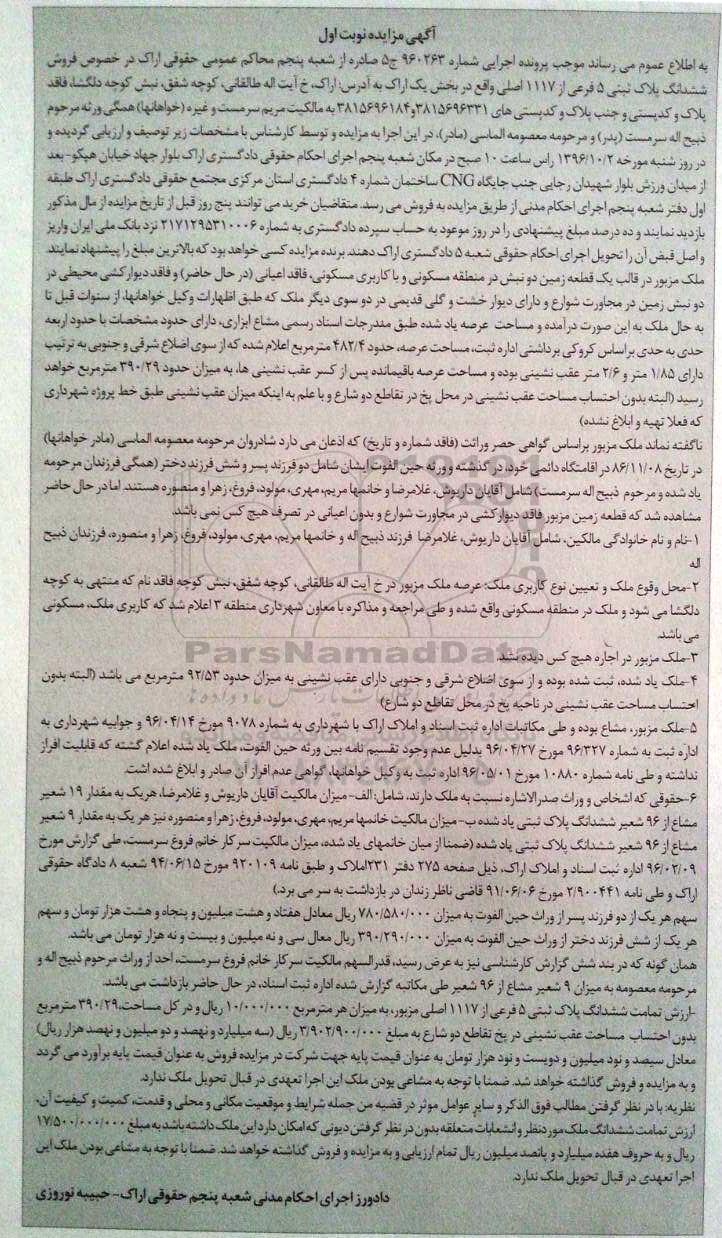 آگهی مزایده نوبت اول
به اطلاع عموم می رساند موجب پرونده اجرایی شماره ۹۶۰۲۶۳ ج۵ صادره از شعبه پنجم محاکم عمومی حقوقی اراک در خصوص فروش
ششدانگ پلاک ثبتی ۵ فرعی از ۱۱۱۷ اصلی واقع در بخش یک اراک به آدرس: اراک، خ آیت اله طالقانی، کوچه شفق، نبش کوچه دلگشا، فاقد
پلاک و کدپستی و جنب پلاک و کدپستی های ۳۸۱۵۶۹۶۳۳۱و۳۸۱۵۶۹۶۱۸۴ به مالکیت مریم سرمست و غیره (خواهانها) همگی ورثه مرحوم
ذبیح اله سرمست (پدر) و مرحومه معصومه الماسی (مادر)، در این اجرا به مزایده و توسط کارشناس با مشخصات زیر توصیف و ارزیابی گردیده و
در روز شنبه مورخه ۱۳۹۶/۱۰/۲ راس ساعت ۱۰ صبح در مکان شعبه پنجم اجرای احکام حقوقی دادگستری اراک بلوار جهاد خیابان هپکو- بعد
از میدان ورزش بلوار شهیدان رجایی جنب جایگاه CNG ساختمان شماره ۴ دادگستری استان مرکزی مجتمع حقوقی دادگستری اراک طبقه
اول دفتر شعبه پنجم اجرای احکام مدنی از طریق مزایده به فروش می رسد. متقاضیان خرید می توانند پنج روز قبل از تاریخ مزایده از مال مذکور
بازدید نمایند و ده درصد مبلغ پیشنهادی را در روز موعود به حساب سپرده دادگستری به شماره ۲۱۷۱۲۹۵۳۱۰۰۰۶ نزد بانک ملی ایران واریز
و اصل قبض آن را تحویل اجرای احکام حقوقی شعبه ۵ دادگستری اراک دهند. برنده مزایده کسی خواهد بود که بالاترین مبلغ را پیشنهاد نمایند.
ملک مزبور در قالب یک قطعه زمین دو نبش در منطقه مسکونی و با کاربری مسکونی، فاقد اعیانی (در حال حاضر) و فاقد دیوارکشی محیطی در
دو نبش زمین در مجاورت شوارع و دارای دیوار خشت و گلی قدیمی در دو سوی دیگر ملک که طبق اظهارات وکیل خواهانها، از سنوات قبل تا
به حال ملک به این صورت درآمده و مساحت عرصه یاد شده طبق مندرجات اسناد رسمی مشاع ابزاری، دارای حدود مشخصات با حدود اربعه
حدی به حدی براساس کروکی برداشتی اداره ثبت، مساحت عرصه، حدود ۴۸۲/۴ مترمربع اعلام شده که از سوی اضلاع شرقی و جنوبی به ترتیب
دارای ۱/۸۵ متر و ۲/۶ متر عقب نشینی بوده و مساحت عرصه باقیمانده پس از کسر عقب نشینی ها، به میزان حدود ۳۹۰/۲۹ مترمربع خواهد
رسید (البته بدون احتساب مساحت عقب نشینی در محل پخ در تقاطع دو شارع و با علم به اینکه میزان عقب نشینی طبق خط پروژه شهرداری
که فعلا تهیه و ابلاغ نشده)
ناگفته نماند ملک مزبور براساس گواهی حصر وراثت (فاقد شماره و تاریخ) که اذعان می دارد شادروان مرحومه معصومه الماسی (مادر خواهانها)
در تاریخ ۸۶/۱۱/۰۸ در اقامتگاه دائمی خود، در گذشته و ورثه حین الفوت ایشان شامل دو فرزند پسر و شش فرزند دختر (همگی فرزندان مرحومه
یاد شده و مرحوم ذبیح اله سرمست) شامل آقایان داریوش، غلامرضا و خانمها مریم، مهری، مولود، فروغ، زهرا و منصوره هستند. اما در حال حاضر
مشاهده شد که قطعه زمین مزبور فاقد دیوارکشی در مجاورت شوارع و بدون اعیانی در تصرف هیچ کس نمی باشد.
۱-نام و نام خانوادگی مالکین، شامل آقایان داریوش، غلامرضا فرزند ذبیح اله و خانمها مریم، مهری، مولود، فروغ، زهرا و منصوره، فرزندان ذبیح
اله
۲-محل وقوع ملک و تعیین نوع کاربری ملک: عرصه ملک مزبور در خ آیت اله طالقانی، کوچه شفق، نبش کوچه فاقد نام که منتهی به کوچه
دلگشا می شود و ملک در منطقه مسکونی واقع شده و طی مراجعه و مذاکره با معاون شهرداری منطقه ۳ اعلام شد که کاربری ملک، مسکونی
می باشد.
ParsNamadData
۳-ملک مزبور در اجاره هیچ کس دیده نشد.
۴-ملک یاد شده، ثبت شده بوده و از سوی اضلاع شرقی و جنوبی دارای عقب نشینی به میزان حدود ۹۲/۵۳ مترمربع می باشد (البته بدون
احتساب مساحت عقب نشینی در ناحیه پخ در محل تقاطع دو شارع)
۵-ملک مزبور، مشاع بوده و طی مکاتبات اداره ثبت اسناد و املاک اراک با شهرداری به شماره ۹۰۷۸ مورخ ۹۶/۰۴/۱۴ و جوابیه شهرداری به
اداره ثبت به شماره ۹۶/۳۲۷ مورخ ۹۶/۰۴/۲۷ بدلیل عدم وجود تقسیم نامه بین ورثه حین الفوت، ملک یاد شده اعلام گشته که قابلیت افراز
نداشته و طی نامه شماره ۱۰۸۸۰ مورخ ۹۶/۰۵/۰۱ اداره ثبت به وکیل خواهانها، گواهی عدم افراز آن صادر و ابلاغ شده است.
۶-حقوقی که اشخاص و وراث صدرالاشاره نسبت به ملک دارند، شامل: الف- میزان مالکیت آقایان داریوش و غلامرضا، هریک به مقدار ۱۹ شعیر
مشاع از ۹۶ شعیر ششدانگ پلاک ثبتی یاد شده ب- میزان مالکیت خانمها مریم، مهری، مولود، فروغ، زهرا و منصوره نیز هر یک به مقدار ۹ شعیر
مشاع از ۹۶ شعیر ششدانگ پلاک ثبتی یاد شده (ضمنا از میان خانمهای یاد شده، میزان مالکیت سرکار خانم فروغ سرمست، طی گزارش مورخ
۹۶/۰۲/۰۹ اداره ثبت اسناد و املاک اراک، ذیل صفحه ۲۷۵ دفتر ۲۳۱املاک و طبق نامه ۹۲۰۱۰۹ مورخ ۹۴/۰۶/۱۵ شعبه ۸ دادگاه حقوقی
اراک و طی نامه ۲/۹۰۰۴۴۱ مورخ ۹۱/۰۶/۰۶ قاضی ناظر زندان در بازداشت به سر می برد.)
سهم هر یک از دو فرزند پسر از وراث حین الفوت به میزان ۷۸۰/۵۸۰/۰۰۰ ریال معادل هفتاد و هشت میلیون و پنجاه و هشت هزار تومان و سهم
هر یک از شش فرزند دختر از وراث حین الفوت به میزان ۳۹۰/۲۹۰/۰۰۰ ریال معال سی و نه میلیون و بیست و نه هزار تومان می باشد.
همان گونه که در بند شش گزارش کارشناسی نیز به عرض رسید، قدرالسهم مالکیت سرکار خانم فروغ سرمست، احد از وراث مرحوم ذبیح اله و
مرحومه معصومه به میزان ۹ شعیر مشاع از ۹۶ شعیر طی مکاتبه گزارش شده اداره ثبت اسناد، در حال حاضر بازداشت می باشد.
-ارزش تمامت ششدانگ پلاک ثبتی ۵ فرعی از ۱۱۱۷ اصلی مزبور، به میزان هر مترمربع ۱۰/۰۰۰/۰۰۰ ریال و در کل مساحت، ۳۹۰/۲۹ مترمربع
بدون احتساب مساحت عقب نشینی در پخ تقاطع دو شارع به مبلغ ۳/۹۰۲/۹۰۰/۰۰۰ ریال (سه میلیارد و نهصد و دو میلیون و نهصد هزار ریال)
معادل سیصد و نود میلیون و دویست و نود هزار تومان به عنوان قیمت پایه جهت شرکت در مزایده فروش به عنوان قیمت پایه برآورد می گردد
و به مزایده و فروش گذاشته خواهد شد. ضمنا با توجه به مشاعی بودن ملک این اجرا تعهدی در قبال تحویل ملک ندارد.
نظریه: با در نظر گرفتن مطالب فوق الذکر و سایر عوامل موثر در قضیه من جمله شرایط و موقعیت مکانی و محلی و قدمت، کمیت و کیفیت آن،
ارزش تمامت ششدانگ ملک موردنظر و انشعابات متعلقه بدون در نظر گرفتن دیونی که امکان دارد این ملک داشته باشد به مبلغ ۱۷/۵۰۰/۰۰۰/۰۰۰
ریال و به حروف هفده میلیارد و پانصد میلیون ریال تمام ارزیابی و به مزایده و فروش گذاشته خواهد شد. ضمنا با توجه به مشاعی بودن ملک این
اجرا تعهدی در قبال تحویل ملک ندارد.
دادورز اجرای احکام مدنی شعبه پنجم حقوقی اراک- حبیبه نوروزی